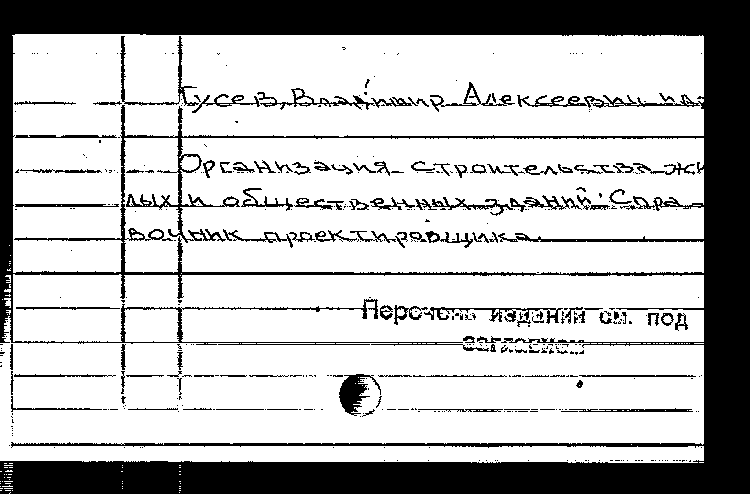 Гусев, Владимир Алексеевич и др
Организация строительства жи
лых и общественных зданий: Спра-
вочник проектировщика.
Перечень изданий см. под
заглавием